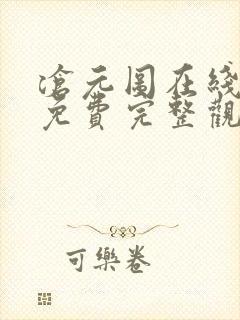 滄元圖在綫
免費完整觀
可樂卷